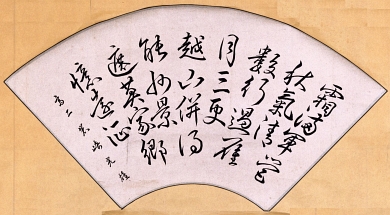 霜滿軍營
秋氣清
數行過雁
月三更
越山併得
能州景
遮莫家郷
憶遠征
高二